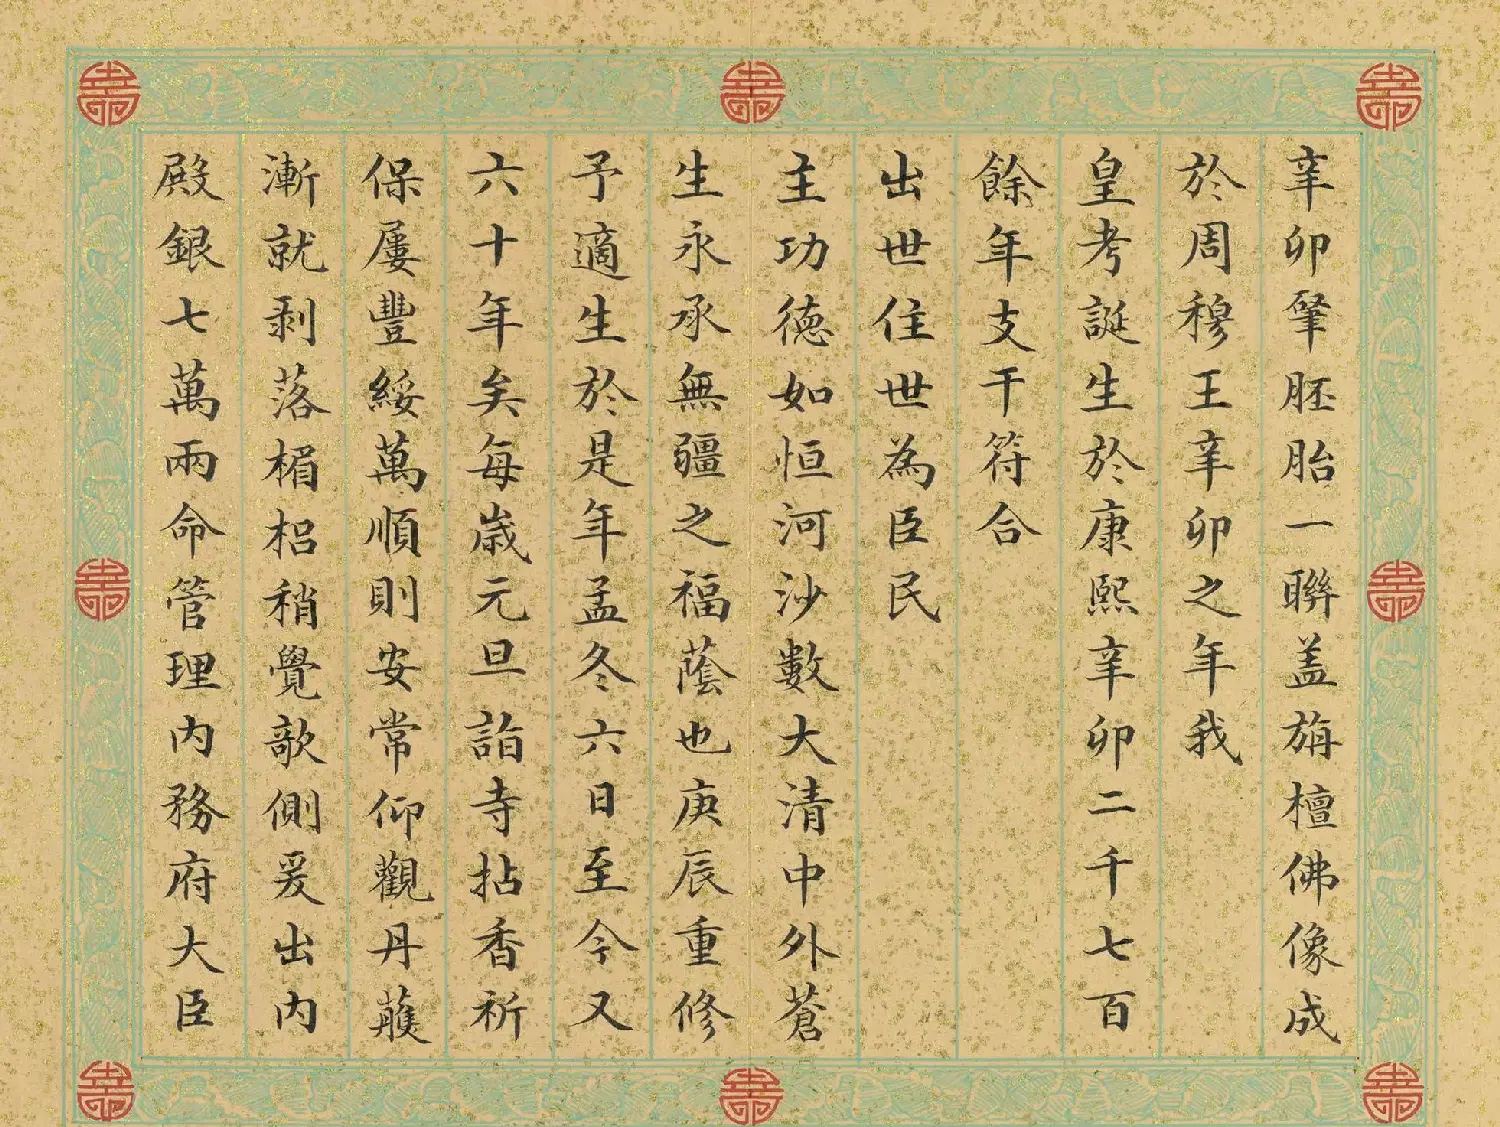 辛卯肇胚胎一聯盖旃檀佛像成
於周穆王辛卯之年我
皇考誕生於康熙辛卯二千七百
餘年支干符合
出世住世為臣民
主功德如恒河沙數大清中外蒼
生永承無疆之福蔭也庚辰重修
予適生於是年孟冬六日至今又
六十年矣每歲元旦詣寺拈香祈
保屢豐綏萬順則安常仰觀丹雘
漸就剥落楣梠稍覺欹側爰出內
殿銀七萬兩命管理內務府大臣